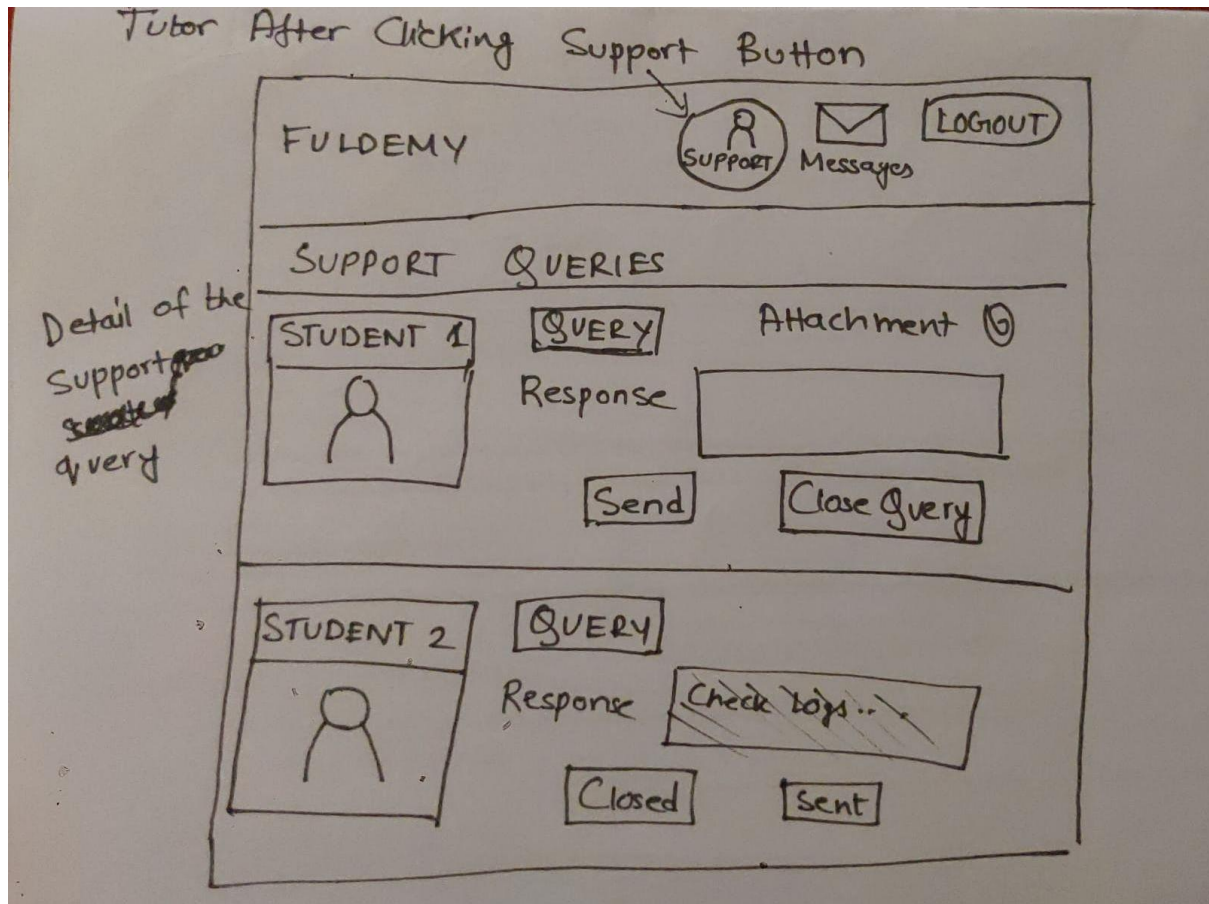 Tutor After Clicking Support Button
FULDEMY
SUPPORT
Messages
LOGOUT
SUPPORT QUERIES
Detail of the
Support
query
STUDENT 1
QUERY
Attachment
Response
Send
Close Query
STUDENT 2
QUERY
Response
Check logs...
Closed
Sent